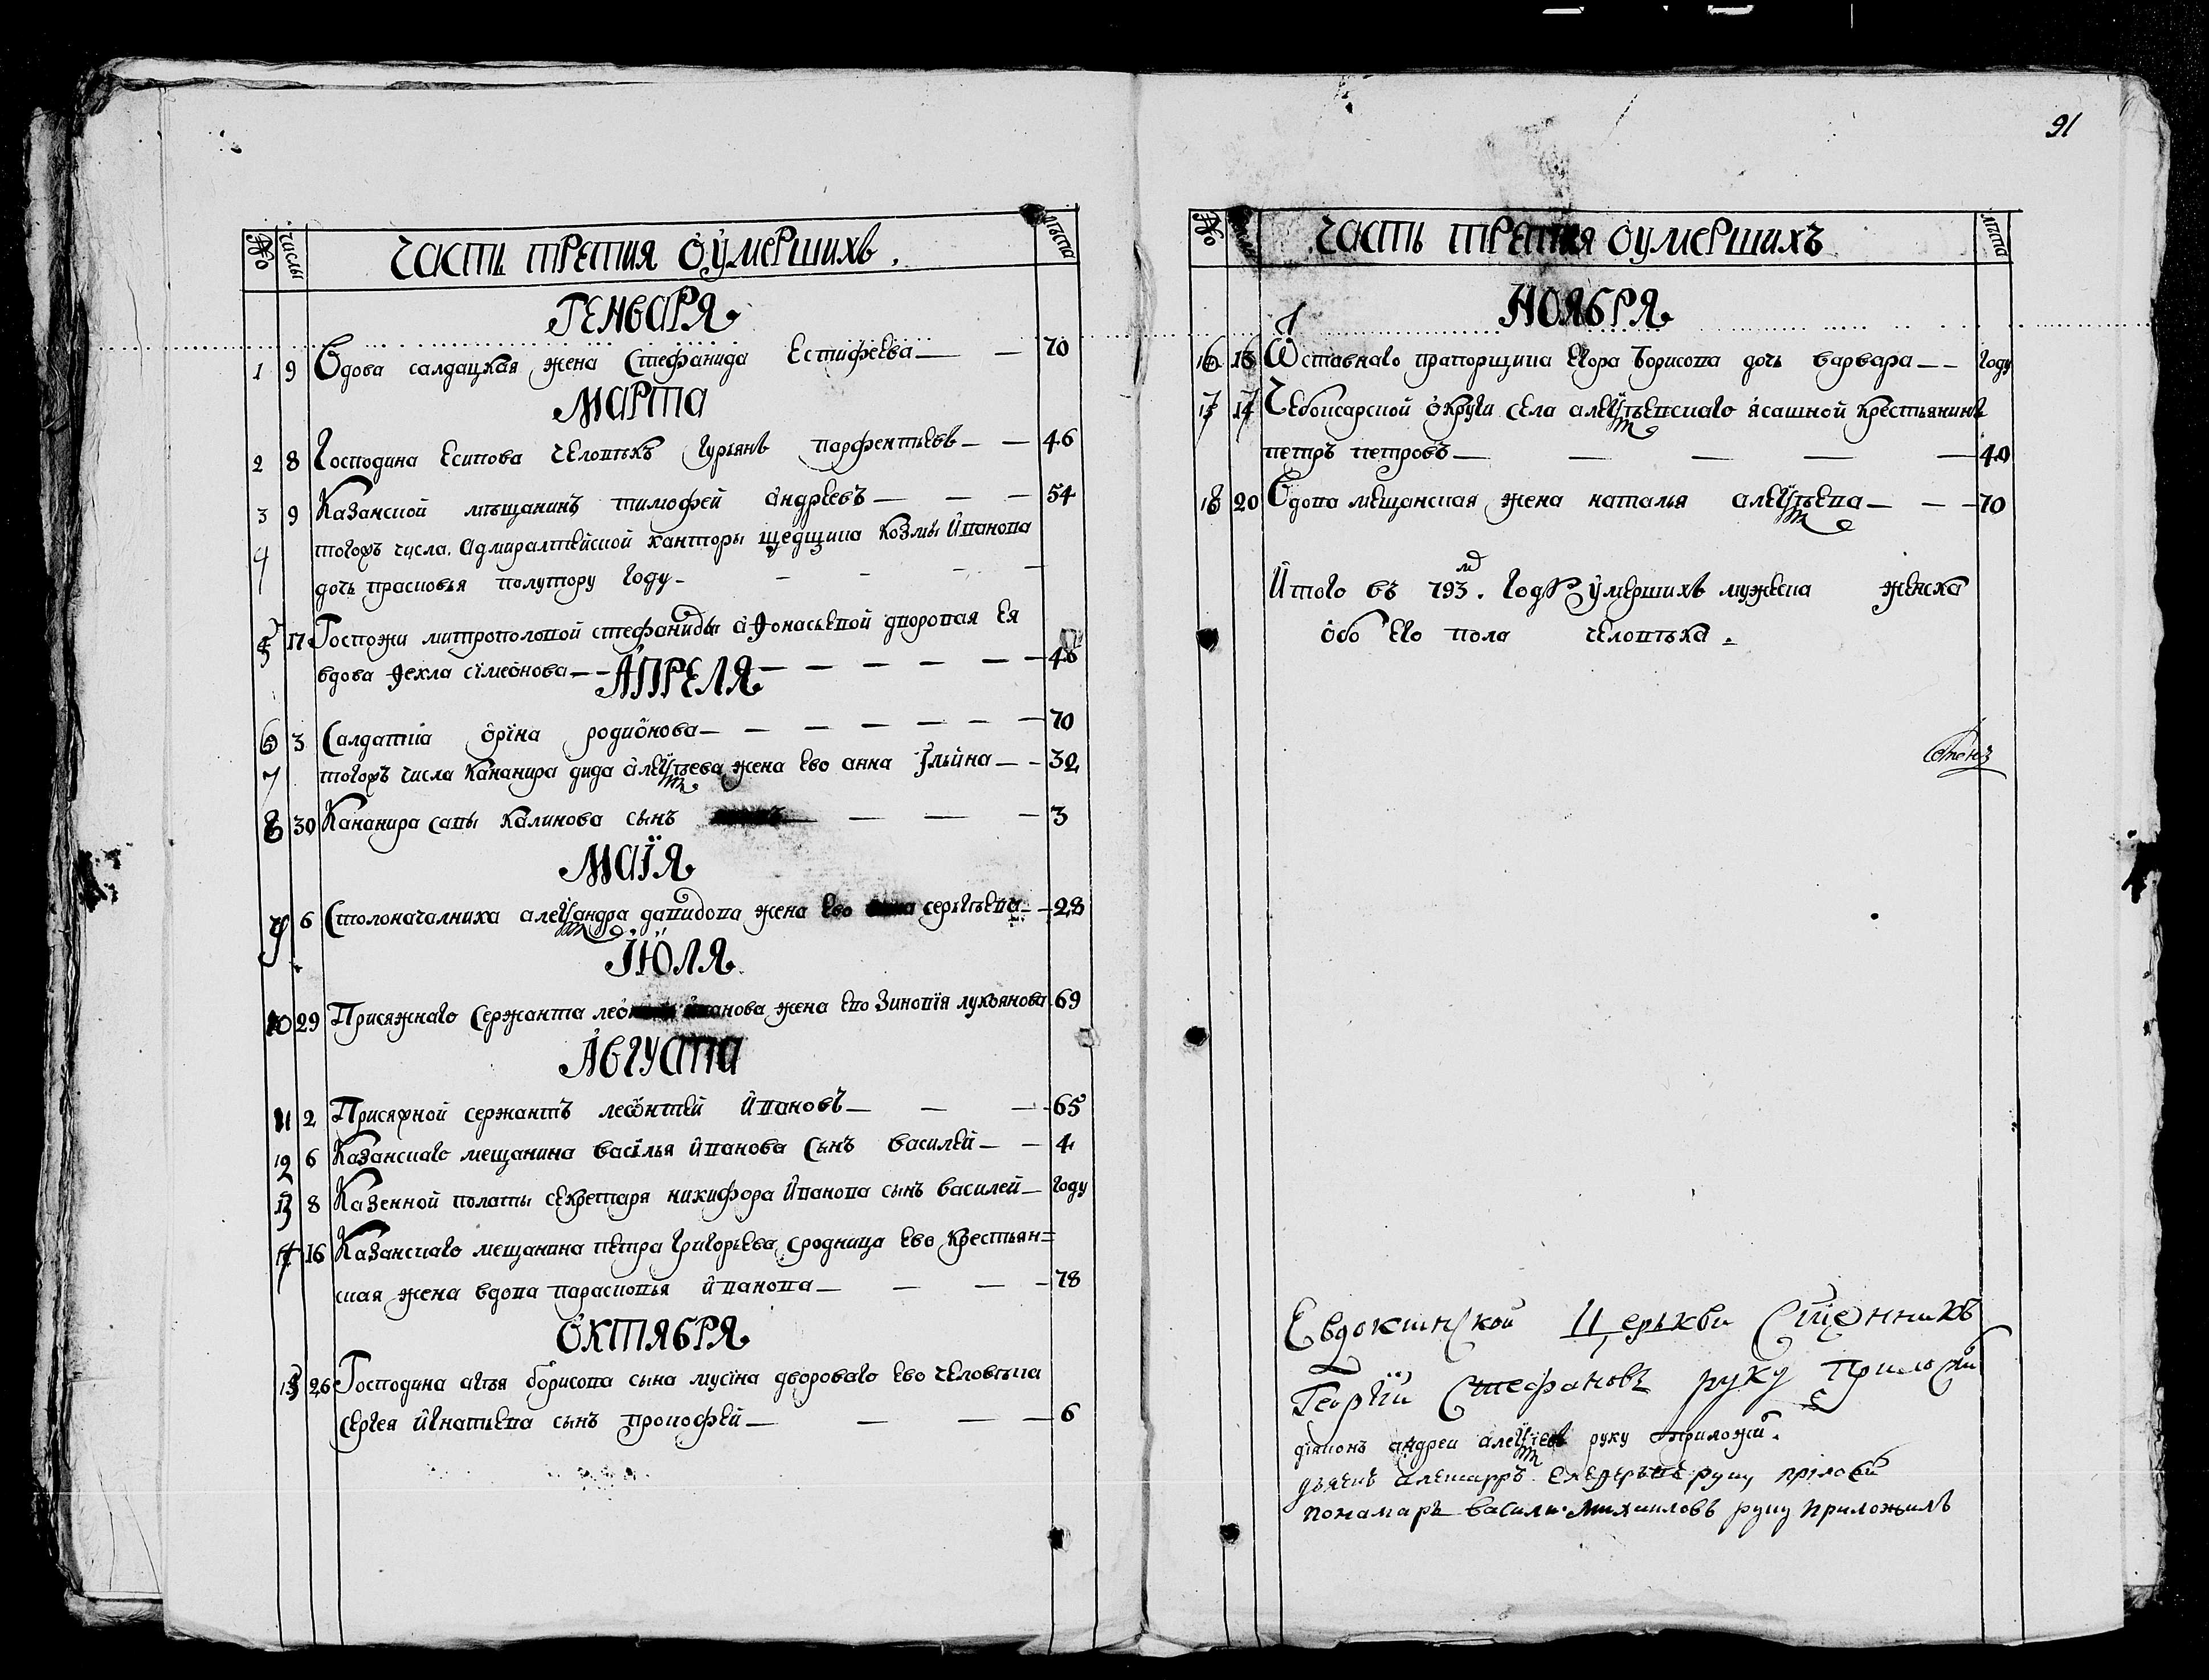 91
№ числы ЧАСТЬ ТРЕТИЯ ОУМЕРШИХЪ. лѣта
ГЕНВАРЯ
1 9 Вдова салдацкая жена Стефанида Естифеева — — 70
МАРТА
2 8 Господина Есипова человѣкъ Гурьянъ парфентьевъ — — 46
3 9 Казанской мѣщанинъ тимофей андреевъ — — — 54
4 тогожъ числа. Адмиралтейской канторы Козмы Иванова
дочь прасковья полутору году — — — — —
5 17 Госпожи митрополовой стефаниды аѳонасьевой дворовая Ея
вдова Ѳекла симеонова — — — — — — — 40
АПРЕЛЯ
6 3 Салдатка орина родионова — — — — — — — 70
7 тогожъ числа Кананира алеѯѣева жена Ево анна Ильина — — 32
8 30 Кананира савы калинова сынъ — — — 3
МАІЯ
9 6 Столоначалника алеѯандра давидова жена Ево сергѣева — — 28
ІЮЛЯ
10 29 Присяжнаго Сержанта жена Ево Зиновія лукъянова 69
АВГУСТА
11 2 Присяжной сержантъ леѡнтей Ивановъ — — — 65
12 6 Казанскаго мещанина василья иванова Сынъ василей — — 4
13 8 Казенной полаты секретаря никифора Иванова сынъ василей — году
14 16 Казанскаго мещанина петра григорьева, сродница Ево крестьян=
ская жена вдова парасковья иванова — — — — 78
ОКТЯБРЯ
15 26 Господина борисова сына мусина двороваго Ево человѣка
Сергея Игнатьева сынъ прокофей — — — — 6
№ ЧАСТЬ ТРЕТИЯ ОУМЕРШИХЪ лѣта
НОЯБРЯ
16 13 Ѿставнаго прапорщика Егора борисова дочь варвара — — году
17 17 Чебоксарской округи села алеѯѣевскаго ясашной крестьянинъ
петръ петровъ — — — — — 40
18 20 Вдова мещанская жена наталья алеѯѣева — — — 70
Итого въ 793.м годꙋ умершихъ мужеска женска
обоего пола человѣка.
Евдокинской Церькви Сщенникъ
Георгій Стефановъ руку приложи
діяконъ андреи алеѯіевъ руку приложи.
дьячекъ руку
понамарь васили михаиловъ руку приложилъ